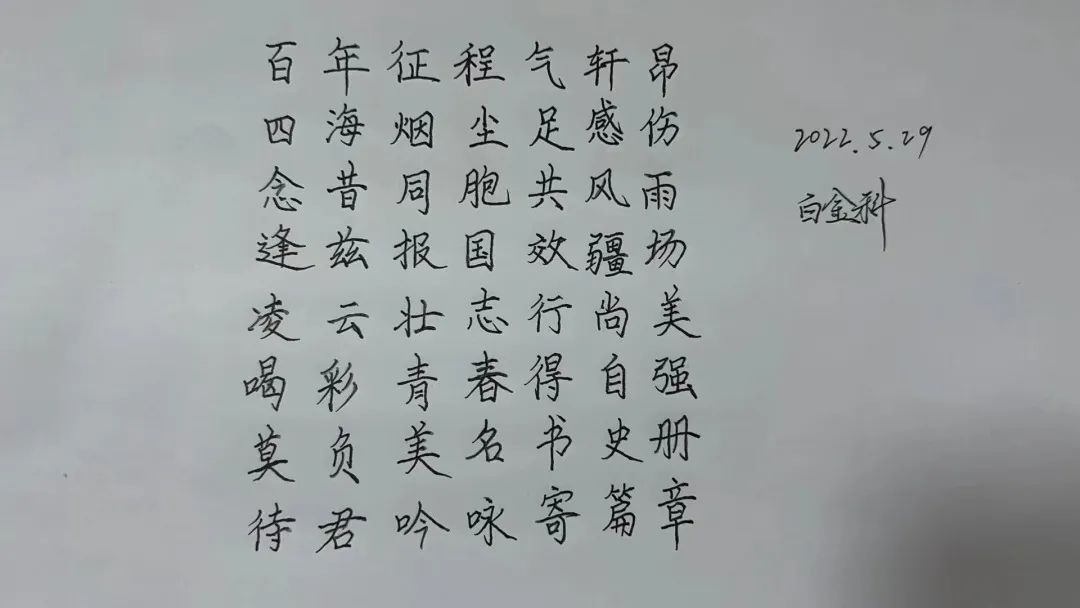 百年征程气轩昂
四海烟尘足感伤
念昔同胞共风雨
逢兹报国效疆场
凌云壮志行尚美
喝彩青春得自强
莫负美名书史册
待君吟咏寄篇章
2022.5.29
白金科